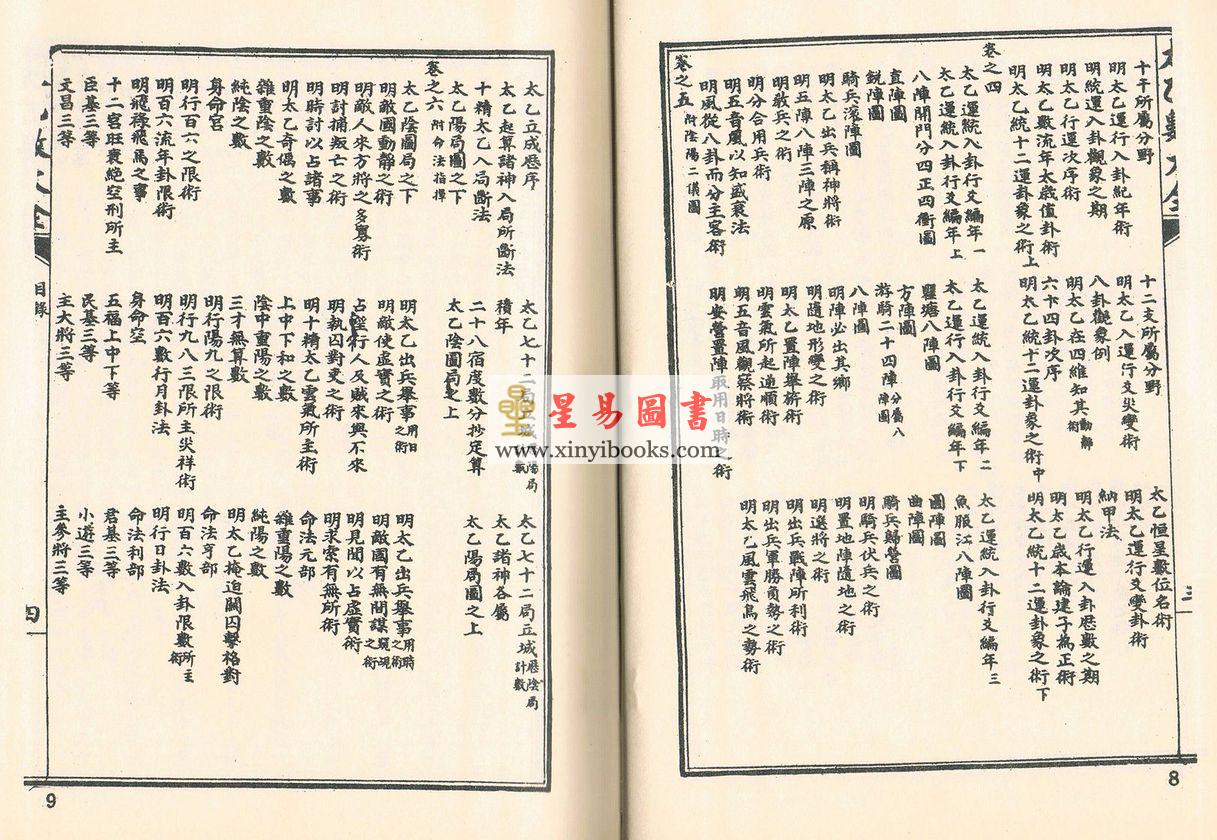 三
十干所屬分野
十二支所屬分野
太乙恒星數位名術
明太乙運行入卦紀年術
明太乙入運行爻災變術
明太乙運行爻變卦術
明統運入卦觀象之期
八卦觀象例
納甲法
明太乙行運次序術
明太乙在四維知其勸解術
明太乙行運入卦歷數之期
明太乙數流年太歲值卦術
六十四卦次序
明太乙歲本論建子為正術
明太乙統十二運卦象之術上
明太乙統十二運卦象之術中
明太乙統十二運卦象之術下
卷之四
太乙運統入卦行爻編年一
太乙運統入卦行爻編年二
太乙運統入卦行爻編年三
太乙運統入卦行爻編年上
太乙運行入卦行爻編年下
魚服江八陣圖
八陣開門分四正四衝圖
瞿塘八陣圖
圓陣圖
直陣圖
方陣圖
曲陣圖
銳陣圖
游騎二十四陣分屬八陣圖
騎兵歸營圖
騎兵滾陣圖
八陣圖
明騎兵伏兵之術
明太乙出兵稱神將術
明陣必出其鄉
明置地陣隨地之術
明五陣八陣三陣之原
明隨地形變之術
明選將之術
明教兵之術
明太乙置陣舉旂術
明出兵戰陣所利術
明分合用兵術
明雲氣所起逆順術
明出兵軍勝負勢之術
明五音風以知盛衰法
明五音風觀察將術
明太乙風雲飛鳥之勢術
明風從八卦而分主客術
明安營置陣取用日時之術
卷之五 附陰陽二儀圖
8
太乙立成歷序
太乙七十二局立城陽局
太乙七十二局立城歷陰局計數
太乙起算諸神入局所斷法
積年
太乙諸神各屬
十精太乙入局斷法
二十八宿度數分抄定算
太乙陽局圖之上
太乙陽局圖之下
太乙陰圖局之上
卷之六 附命法指撣
太乙陰圖局之下
明太乙出兵舉事用日之術
明太乙出兵舉事用時之術
明敵國動靜之術
明敵使虛實之術
明敵國有無間諜窺覘之術
明敵人來方將之多寡術
占陞行人及賊來與不來
明見聞以占虛實術
明討捕叛亡之術
明執囚對吏之術
明求索有無所術
明時討以占諸事
明十精太乙雲氣所主術
命法元部
明太乙奇偶之數
上中下和之數
雜重陽之數
雜重陰之數
陰中重陽之數
純陽之數
純陰之數
三才無算數
明太乙掩迫關囚擊格對
身命宮
明行陽九之限術
命法亨部
明行百六之限術
明行九八三限所主災祥術
明百六數入卦限數所主術
明百六流年卦限術
明百六數行月卦法
明行日卦法
明飛祿飛馬之事
身命空
命法利部
十二宮旺衰絶空刑所主
五福上中下等
君基三等
臣基三等
民基三等
小遊三等
文昌三等
主大將三等
主參將三等
目錄
四
9
星易圖書
www.xinyibooks.com